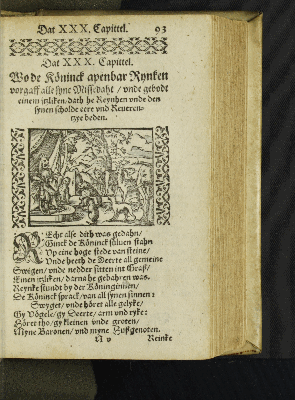 Dat XXX. Capittel. 93
Dat XXX. Capittel.
Wo de Köninck apenbar Rynken
vorgaff alle syne Missedaht / vnde gebodt
einem jtliken, dath he Reynken vnde den
synen scholde eere vnd Reueren-
tye beden.
REcht alse dith was gedahn /
Ginck de Köninck süluen stahn
Vp eine hoge stede van steine /
Vnde heeth de Deerte all gemeine
Swigen / vnde nedder sitten int Graß /
Einen jtliken / darna he gebahren was.
Reynke stundt by der Köninginnen /
De Köninck sprack / van all synen sinnen:
Swyget / vnde höret alle gelyke /
Gy Vögele / gy Deerte / arm vnd ryke:
Höret tho / gy kleinen vnde groten /
Myne Baronen / vnd myne Hußgenoten.
N v Reinke